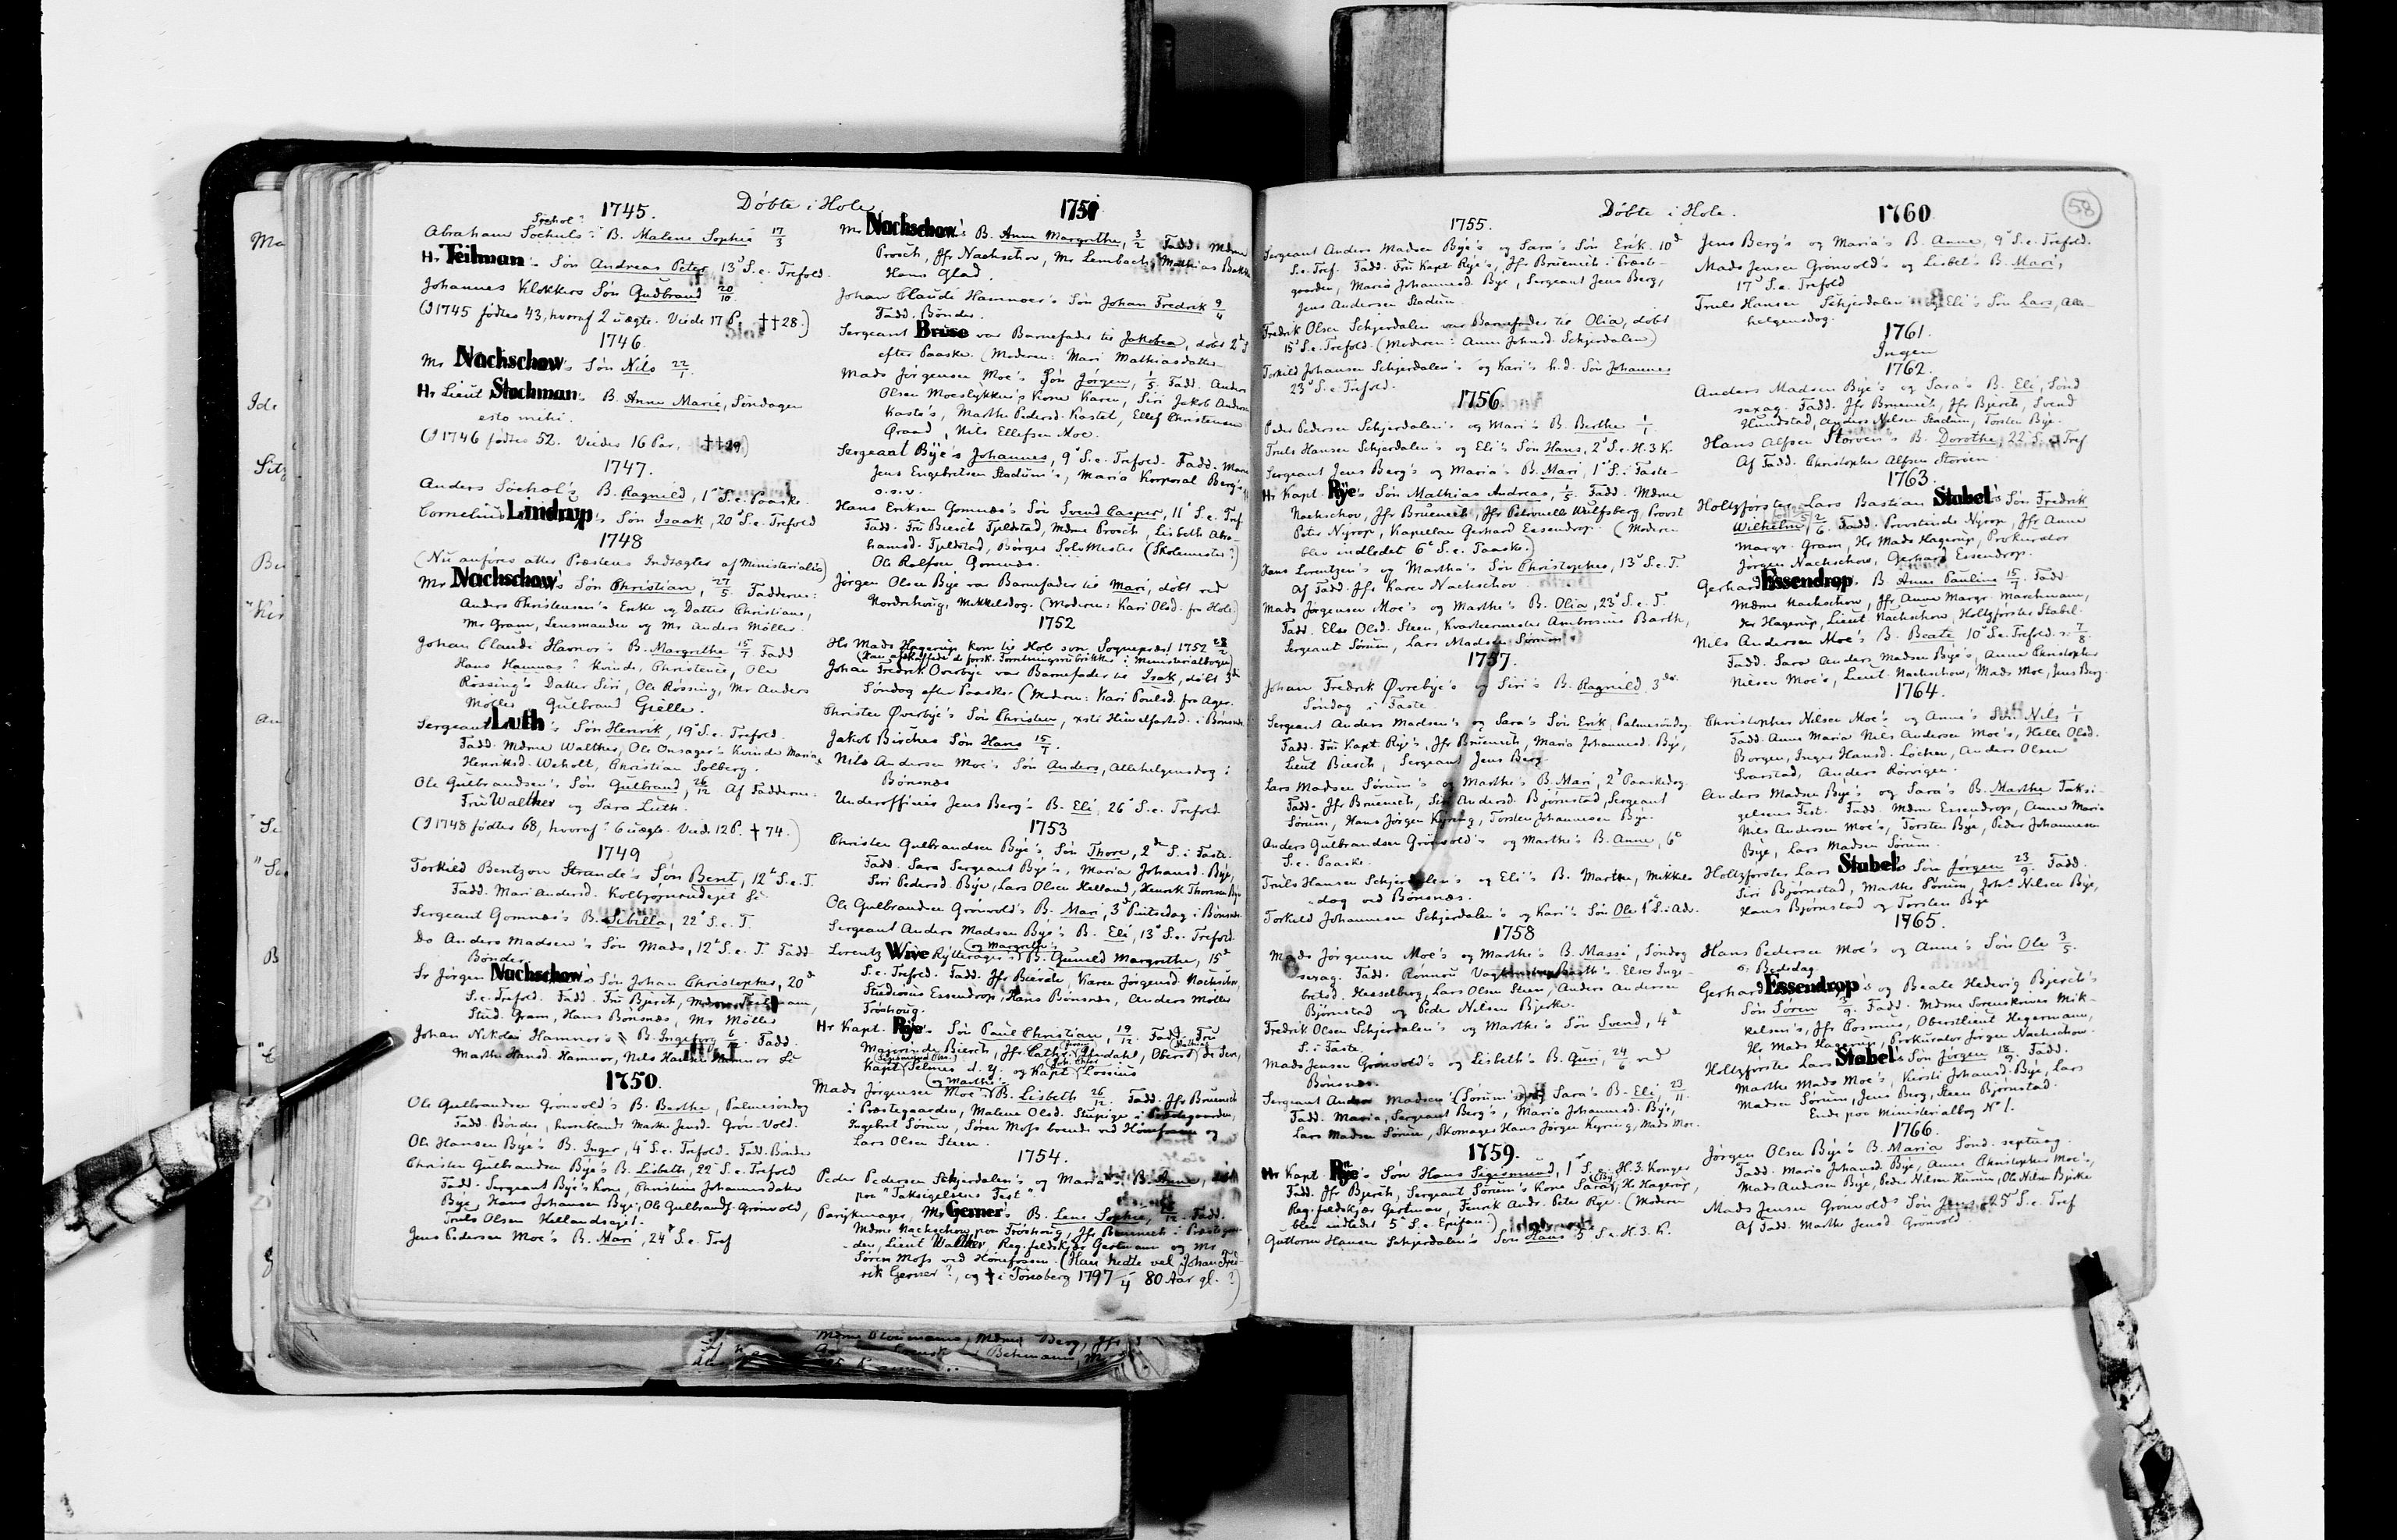 Døbte i Hole
1745.
Sochol?
Abraham Sochuls? B. Malene Sophie 17/3
Hr Teilman's Søn Andreas Peter 13d S. e. Trefold.
Johannes Klokkers Søn Gudbrand 20/10
(I 1745 fødtes 43, hvoraf 2 uægte. Viede 17 P. ††28.)
1746.
Mr Nachschow's Søn Nils 22/1
Hr Lieut Stochman's B. Anne Marie, Søndagen
esto mihi.
(I 1746 fødtes 52. Viedes 16 Par. ††29)
1747.
Anders Sochol's B. Ragnild, 1ste S. e. Paaske.
Cornelius Lindrup's Søn Isaak, 20d S. e. Trefold
1748
(Nu anføres atter Præstens Indtægter af Ministerialia)
Mr Nachschow's Søn Christian, 27/5 Fadderne:
Anders Christensen's Enke og Datter Christiane,
Mr Gram, Lensmanden og Mr Anders Møller.
Johan Claudi Hamnor's B. Margrethe 15/7 Fadd
Hans Hamnas? Kvinde, Christence, Ole
Røssing's Datter Siri, Ole Røssing, Mr Anders
Møller Gulbrand Gjelle.
Sergeant Luth's Søn Henrik, 19d S. e. Trefold.
Fadd. Mdme Walther, Ole Onsager's Kvinde Maria
Henriksd. Weholt, Christian Solberg.
Ole Gulbrandsen's Søn Gulbrand, 26/12 Af Fadderne:
Fru Walther og Sara Luth.
(I 1748 fødtes 68, hvoraf? 6 uægte. Viede 12 P. † 74.)
1749
Torkild Bentzon Strande's Søn Bent, 12te S. e. T.
Fadd. Mari Andersd. Kolbjørnrudejet &c
Sergeant Gomnæs's B. Sibilla, 22d S. e. T.
Do Anders Madsen's Søn Mads, 12te S. e. T. Fadd.
Bønder.
Sr Jørgen Nachschow's Søn Johan Christopher, 20d
S. e. Trefold. Fadd. Fru Bjerch,
Stud. Gram, Hans Bønsnæs, Mr Møller
Johan Nikolai Hamnor's B. Ingeborg 6/12. Fadd.
Marthe Hansd. Hamnor, Nils Hansen Hamnor &c
1750.
Ole Gulbrandsen Grønvold's B. Berthe, Palmesøndag
Fadd. Bønder, hvoriblandt Marthe Jensd. Grøn-Vold.
Ole Hansen Bye's B. Inger, 4de S. e. Trefold. Fadd. Bønder
Christen Gulbrandsen Bye's B. Lisbeth, 22d S. e. Trefold
Fadd. Sergeant Bye's Kone, Christine Johannesdatter
Bye, Hans Johansen Bye, Ole Gulbrands. Grønvold,
Truls Olsen Hellandsejet.
Jens Pedersen Moe's B. Mari, 24d S. e. Tref
1751
Mr Nachschow's B. Anne Margrethe, 3/2 Fadd. Mdme
Prosch, Jfr Nachschow, Mr Lembach, Mathias
Hans Glad.
Johan Claudi Hamnoer's Søn Johan Fredrik 9/4
Fadd. Bønder.
Sergeant Bruse var Barnefader til Jakobea, døbt 2d S
efter Paaske. (Moderen: Mari Mathiasdatter
Mads Jørgensen Moe's Søn Jørgen, 1/5 Fadd. Anders
Olsen Moeslykken's Kone Karen, Siri Jakob Anders
Kaste's, Marthe Pedersd. Kastet, Ellef Christensen
Øraad, Nils Ellefsen Moe.
Sergeant Bye's Johannes, 9d S. e. Trefold. Fadd. Maren
Jens Engebretsen Stadum's, Maria Korporal Berg's
o. s. v.
Hans Eriksen Gomnæs's Søn Svend Casper, 11d S. e. Tref
Fadd. Fru Biesch Tjeldstad, Mdme Prosch, Lisbeth Abra-
hamsd. Fjeldstad, Børges SoloMester (Skolemester?)
Ole Rolfsen Gomnæs.
Jørgen Olsen Bye var Barnefader til Mari, døbt ved
Nordrehoug, Mikkelsdag. (Moderen: Kari Olsd. fra Hole.)
1752
Hr Mads Hagerup kom til Hole som Sognepræst 1752 28/2
(Han afskaffede de forsk. Forretningsrubrikker i Ministerialbogen)
Johan Fredrik Overbye var Barnefader til Isak, døbt 3de
Søndag efter Paaske. (Moderen: Kari Poulsd. fra Ager.
Christen Øverbye's Søn Christen, xsti Himelfartsd. i Bønsnæs
Jakob Birches Søn Hans 15/7.
Nils Andersen Moe's Søn Anders, Allehelgensdag i
Bønsnæs
Underofficier Jens Berg's B. Eli, 26d S. e. Trefold
1753
Christen Gulbrandsen Bye's Søn Thore, 2den S. i Faste.
Fadd. Sara Sergeant Bye's, Maria Johansd. Bye,
Siri Pedersd. Bye, Lars Olsen Helland, Henrik Thoresen Bye
Ole Gulbrandsen Grønvold's B. Mari, 3d Pintsedag i Bønsnæs
Sergeant Anders Madsen Bye's B. Eli, 13d S. e. Trefold
Lorentz Wrive Rytterager's (og Margrethe's) B. Gunild Margrethe, 15d
S. e. Trefold. Fadd. Jfr Bierch, Karen Jørgensd. Nachschov,
Studiosus Essendrop, Hans Bønsnæs, Anders Møller
Frøshoug.
Hr Kapt. Rye's Søn Paul Christian, 19/12. Fadd. Fru
Majorinde Biersch, Jfr. Cathr. Arndahl, Oberst de Seue,
Kapt Selmer d. y. og Kapt Lossius
Mads Jørgensen Moe's (og Marthe's) B. Lisbeth 26/12. Fadd. Jfr Bruenech
i Præstegaarden, Malene Olsd. Stupige i Præstegaarden,
Ingebret Sørum, Søren Moss boende ved Hønefossen og
Lars Olsen Steen.
1754.
Peder Pedersen Schjerdalen's og Maria's B. Anne,
paa "Taksigelsens Fest"
Parykmager, Mr Gerner's B. Lene Sophie, Fadd.
Mdme Nachschow paa Frøshoug, Jfr Bruenech i Præstegaar-
den, Lieut Walther, Reg. feldskjær Gertmann og Mr
Søren Moss ved Hønefossen. (Han hedte vel Johan Fred-
rik Gerner?, og † i Tønsberg 1797 /4 80 Aar gl.?)
Døbte i Hole.
58
1755.
Sergeant Anders Madsen Bye's og Sara's Søn Erik 10d
S. e. Tref. Fadd. Fru Kapt Rye's, Jfr Bruenech i Præste-
gaarden, Maria Johannesd. Bye, Sergeant Jens Berg,
Jens Andersen Stadum.
Fredrik Olsen Schjerdalen var Barnefader til Olia, døbt
15d S. e. Trefold. (Moderen: Anne Johnsd. Schjerdalen)
Torkild Johansen Schjerdalen's og Kari's h. d. Søn Johannes
23d S. e. Trefold.
1756.
Peder Pedersen Schjerdalen's og Mari's B. Berthe 1/1
Truls Hansen Schjerdalen's og Eli's Søn Hans, 2d S. e. H. 3 K.
Sergeant Jens Berg's og Maria's B. Mari, 1ste S. i Faste-
Hr Kapt. Rye's Søn Mathias Andreas, 1/5. Fadd. Mdme
Nachschov, Jfr Bruenech, Jfr Petronelle Wulfsberg, Provst
Peter Nyrop, Kapellan Gerhard Essendrop. (Moderen
blev indledet 6te S. e. Paaske.)
Hans Lorentzen's og Martha's Søn Christopher, 13d S. e. T.
Af Fadd. Jfr Karen Nachschov
Mads Jørgensen Moe's og Marthe's B. Olia, 23d S. e. T.
Fadd. Else Olsd. Steen, Kvartermester Ambrosius Barth,
Sergeant Sørum, Lars Madsen Sørum.
1757.
Johan Fredrik Øvrebye's og Siri's B. Ragnild 3die
Søndag i Faste
Sergeant Anders Madsen's og Sara's Søn Erik, Palmesøndag
Fadd. Fru Kapt. Rye's, Jfr Bruenech, Maria Johannesd. Bye,
Lieut Biesch, Sergeant Jens Berg.
Lars Madsen Sørum's og Marthe's B. Mari, 2d Paaskedag
Fadd. Jfr Bruenech, Siri Andersd. Bjørnstad, Sergeant
Sørum, Hans Jørgen Kyring, Torsten Johannesen Bye.
Anders Gulbrandsen Grønvold's og Marthe's B. Anne, 6te
S. e. Paaske.
Truls Hansen Schjerdalen's og Eli's B. Marthe, Mikkels-
dag ved Bønsnæs.
Torkild Johannesen Schjerdalen's og Kari's Søn Ole 1ste S. i Ad.
1758
Mads Jørgensen Moe's og Marthe's B. Massi, Søndag
sexag. Fadd. Rønnou Barth's. Else Inge-
bretsd. Hesselberg, Lars Olsen Steen, Anders Andersen
Bjørnstad og Peder Nilsen Bjerke.
Fredrik Olsen Schjerdalen's og Marthe's Søn Svend, 4de
S. i Faste
Mads Jensen Grønvold's og Lisbeth's B. Guri, 24/6 ved
Bønsnæs.
Sergeant Anders Madsen's (Sørum) og Sara's B. Eli, 23/11.
Fadd. Maria, Sergeant Berg's, Maria Johannesd. Bye,
Lars Madsen Sørum, Skomager Hans Jørgen Kyring, Mads Moe.
1759.
Hr Kapt. Rye's Søn Hans Sigismund, 1ste S. e. H. 3 Konger
Fadd. Jfr Bjerch, Sergeant Sørum's Kone Sara, Hr Hagerup,
Reg. feldskjær Gertman, Henrik Andr. Peter Rye. (Moderen
blev indledet 5te S. e. Epifan.)
Guttorm Hansen Schjerdalen's Søn Hans 5te S. e. H. 3. K.
1760
Jens Berg's og Maria's B. Anne, 9d S. e. Trefold.
Mads Jensen Grønvold's og Lisbet's B. Mari,
17d S. e. Trefold
Truls Hansen Schjerdalen's og Eli's Søn Lars, Alle-
helgensdag.
1761.
Ingen
1762.
Anders Madsen Bye's og Sara's B. Eli, Sønd
sexag. Fadd. Jfr Bruenech, Jfr Bjerch, Svend
Hundstad, Anders Nilsen Stadum, Torsten Bye.
Hans Alfsen Storøen's B. Dorothe, 22d S. e. Tref
Af Fadd. Christopher Alfsen Storøen
1763.
Holtzførster Lars Bastian Stabel's Søn Fredrik
Wilhelm 2/6. Fadd. Provstinde Nyrop, Jfr Anne
Margr. Gram, Hr Mads Hagerup, Prokurator
Jørgen Nachschow, Gerhard Essendrop.
Gerhard Essendrop's B Anne Pauline 15/7. Fadd
Mdme Nachschow, Jfr Anne Margr. Marchmann,
Hr Hagerup, Lieut. Nachschow, Holtzførster Stabel.
Nils Andersen Moe's B. Beate 10d S. e. Trefold. : 7/8.
Fadd. Sara Anders Madsen Bye's, Anne Christopher
Nilsen Moe's, Lieut. Nachschow, Mads Moe, Jens Berg.
1764.
Christopher Nilsen Moe's og Anne's Søn Nils 1/1
Fadd. Anne Maria Nils Andersen Moe's, Helle Olsd.
Borgen, Inger Hansd. Løchen, Anders Olsen
Svarstad, Anders Rørvigen.
Anders Madsen Bye's og Sara's B. Marthe Taksi-
gelsens Fest. Fadd. Mdm Essendrop, Anne Maria
Nils Andersen Moe's, Torsten Bye, Peder Johannesen
Bye, Lars Madsen Sørum.
Holtzførster Lars Stabel's Søn Jørgen 23/9. Fadd.
Siri Bjørnstad, Marthe Sørum, Johs Nilsen Bye,
Hans Bjørnstad og Torsten Bye
1765.
Hans Pedersen Moe's og Anne's Søn Ole 3/5.
: Bededag.
Gerhard Essendrop's og Beate Hedevig Bjerch's
Søn Søren 3/9. Fadd. Mdme Sorenskriver Mik-
kelsen's, Jfr Rasmus, Oberstlieut Hegermann,
Hr Mads Hagerup, Prokurator Jørgen Nachschow.
Holtzførster Lars Stabel's Søn Jørgen 18/9. Fadd.
Marthe Mads Moe's, Kirsti Johansd. Bye, Lars
Madsen Sørum, Jens Berg, Steen Bjørnstad.
Ende paa Ministerialbog No 1.
1766.
Jørgen Olsen Bye's B. Maria Sønd. septuag.
Fadd. Maria Johansd. Bye, Anne Christopher Moe's,
Mads Andersen Bye, Peder Nilsen Hurum, Ole Nilsen Bjerke
Mads Jensen Grønvold's Søn Jens 25d S. e. Tref
Af Fadd. Marthe Jensd Grønvold